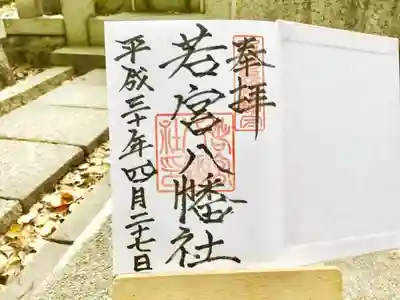 奉拝
若宮八幡社
平成三十年四月二十七日